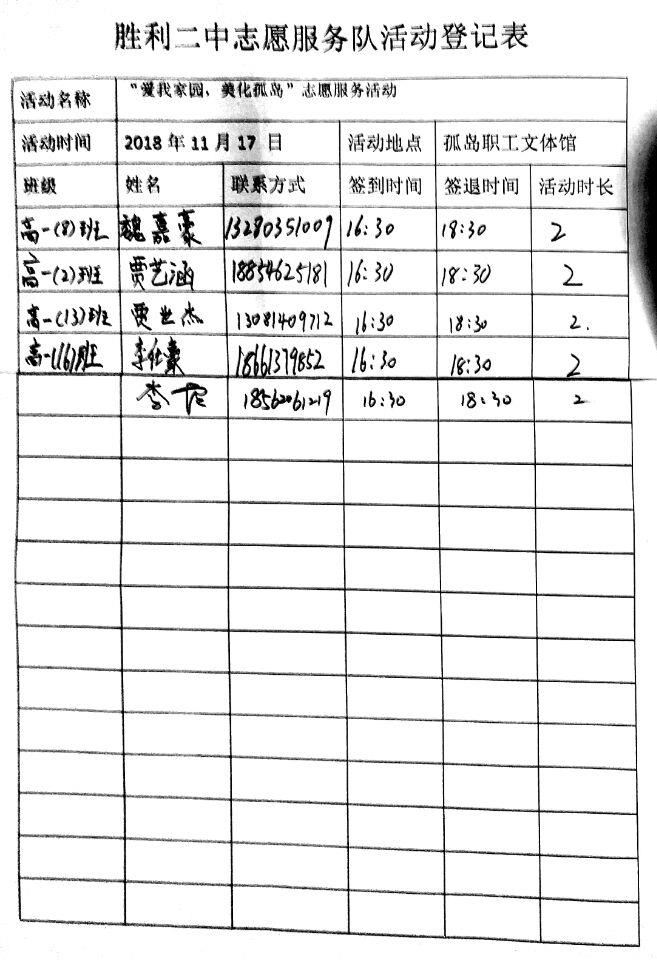 胜利二中志愿服务队活动登记表
活动名称 “爱我家园、美化孤岛”志愿服务活动
活动时间 2018 年 11 月 17 日 活动地点 孤岛职工文体馆
班级 姓名 联系方式 签到时间 签退时间 活动时长
高一(8)班 魏嘉豪 13280351009 16:30 18:30 2
高一(2)班 贾艺涵 18854625181 16:30 18:30 2
高一(13)班 贾世杰 13081409712 16:30 18:30 2.
高一(16)班 李仕豪 18661379852 16:30 18:30 2
李 18562061219 16:30 18:30 2